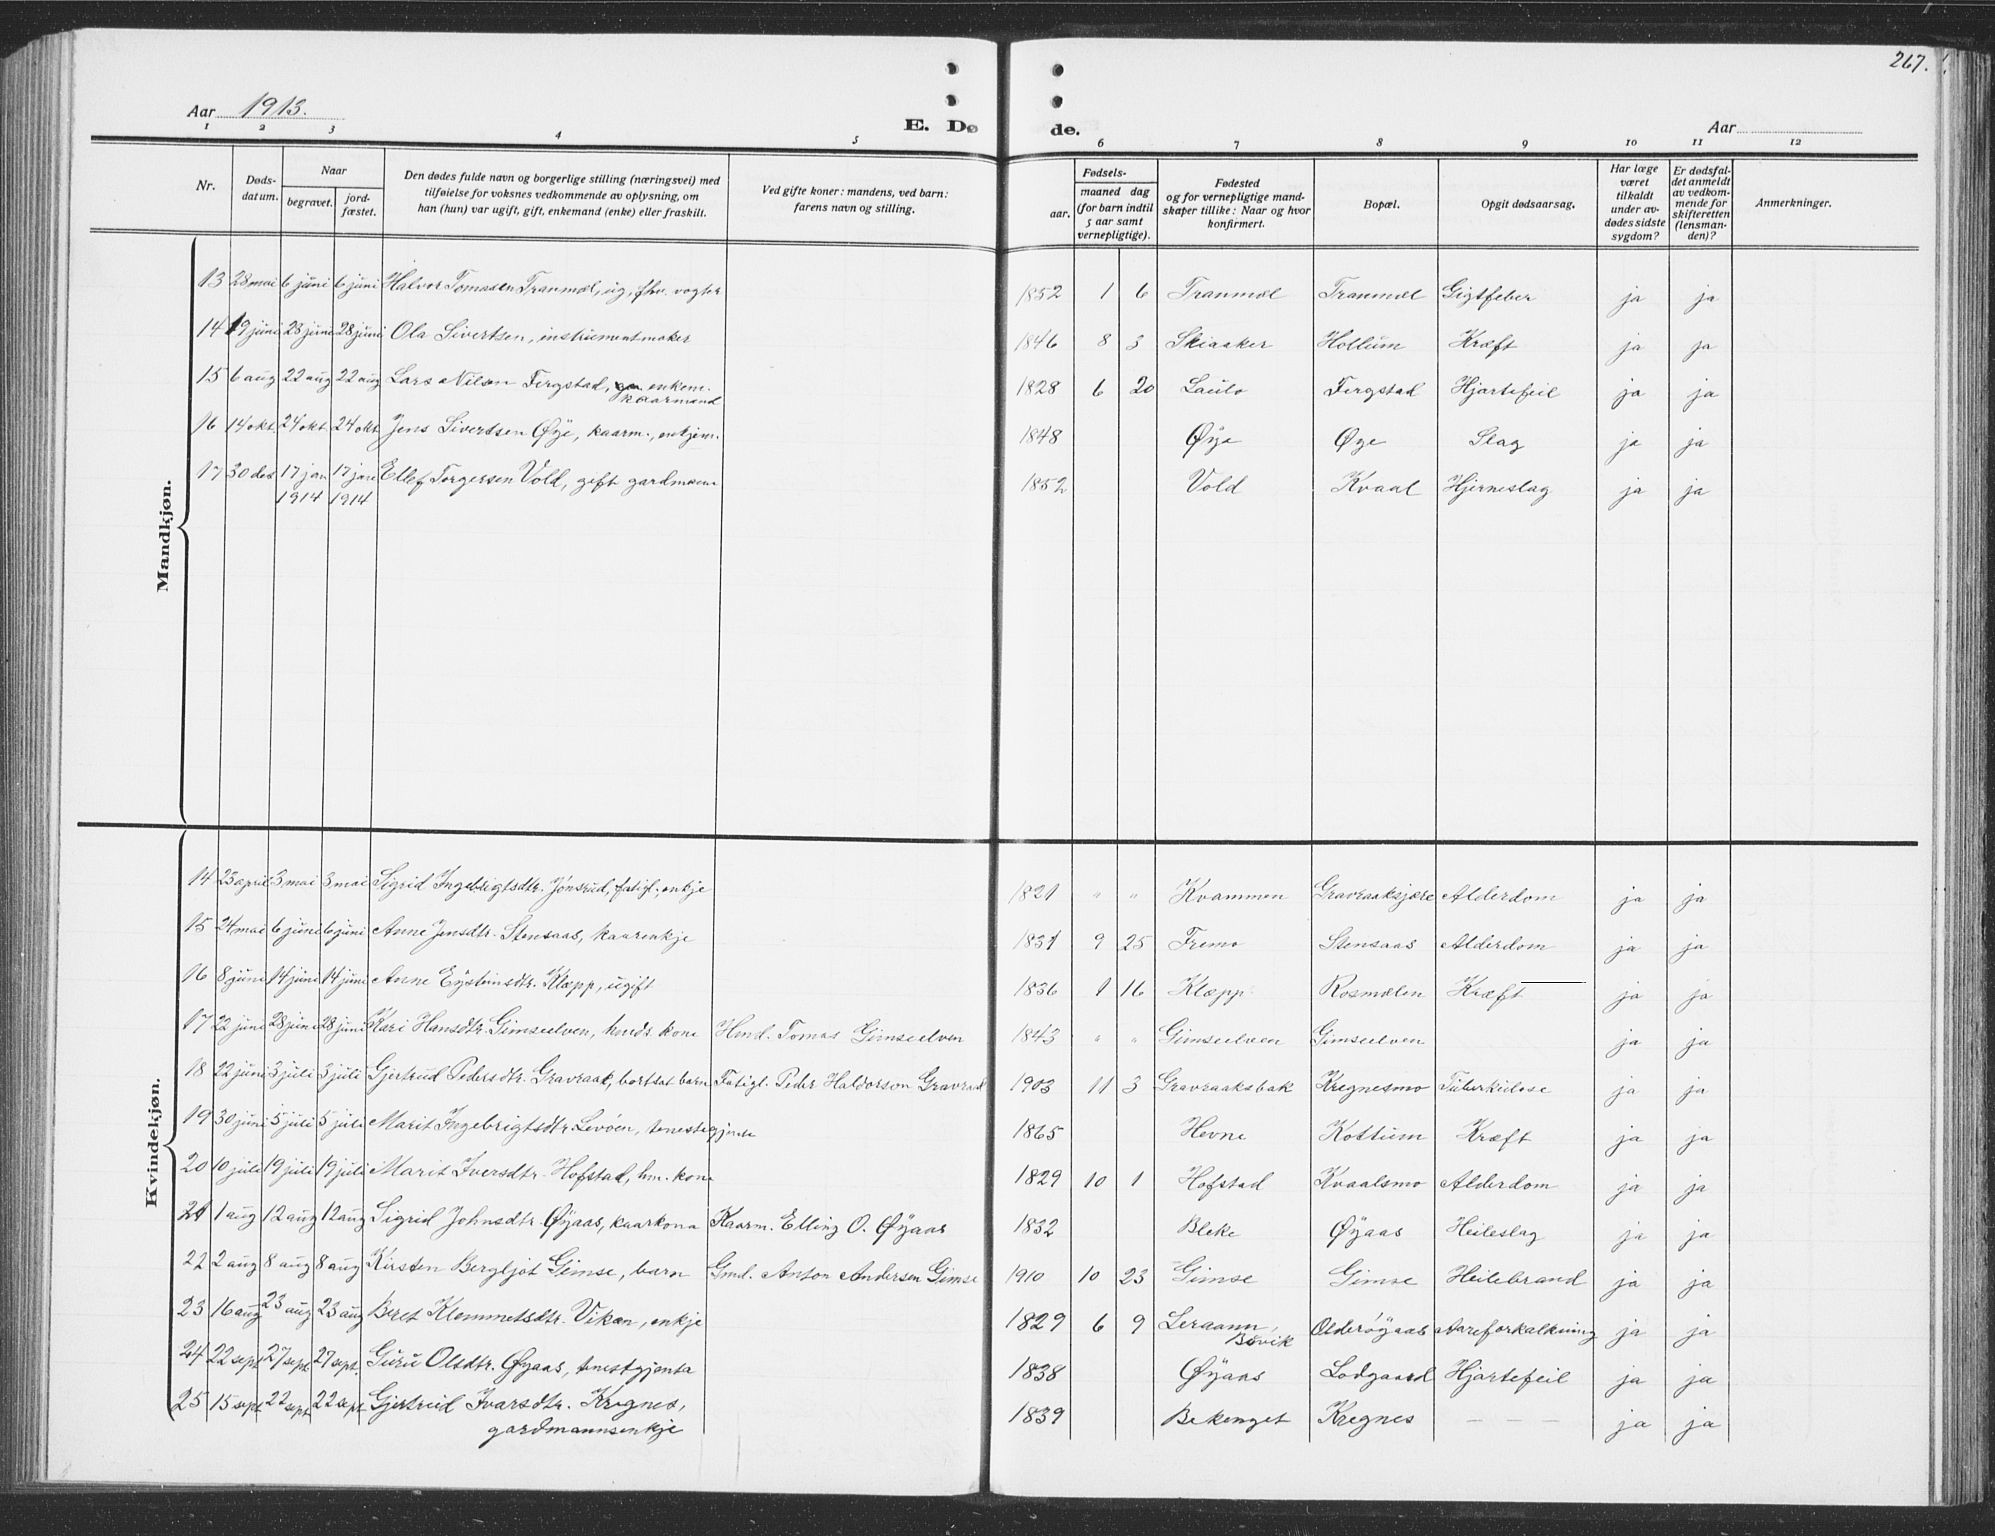 267.
Aar 1913.
E. Døde.
Aar
1 2 3 4 5 6 7 8 9 10 11 12
Nr.
Døds-
datum.
Naar
begravet.
jord-
fæstet.
Den dødes fulde navn og borgerlige stilling (næringsvei) med
tilføielse for voksnes vedkommende av oplysning, om
han (hun) var ugift, gift, enkemand (enke) eller fraskilt.
Ved gifte koner: mandens, ved barn:
farens navn og stilling.
Fødsels-
aar.
maaned dag
(for barn indtil
5 aar samt
vernepligtige).
Fødested
og for vernepligtige mand-
skaper tillike: Naar og hvor
konfirmert.
Bopæl.
Opgit dødsaarsag.
Har læge
været
tilkaldt
under av-
dødes sidste
sygdom?
Er dødsfal-
det anmeldt
av vedkom-
mende for
skifteretten
(lensman-
den)?
Anmerkninger.
Mandkjøn.
13 28 mai 6 juni 6 juni Halvor Tomasen Tranmæl, ug, fhv. vogter 1852 1 6 Tranmæl Tranmæl Gigtfeber ja ja
14 19 juni 28 juni 28 juni Ola Sivertsen, instrumentmaker 1846 8 3 Skiaaker Hollum Kræft ja ja
15 6 aug 22 aug 22 aug Lars Nilsen Fergstad, enkem. 1828 6 20 Laulo Fergstad Hjartefeil ja ja
kaarmand
16 14 okt. 24 okt 24 okt Jens Sivertsen Øye, kaarm., enkjem. 1848 Øye Øye Slag ja ja
17 30 des 17 jan 17 jan Ellef Torgersen Vold, gift gardmann 1852 Vold Kvaal Hjerneslag ja ja
1914 1914
Kvindekjøn.
14 23 april 3 mai 3 mai Sigrid Ingebrigtsdtr. Jønsrud, fatigl. enkje 1821 " " Kvammen Gravraaksjære Alderdom ja ja
15 24 mai 6 juni 6 juni Anne Jensdtr. Stensaas, kaarenkje 1831 9 25 Fremo Stensaas Alderdom ja ja
16 8 juni 14 juni 14 juni Anne Eysteinsdtr. Klæpp, ugift 1836 1 16 Klæpp Rosmælen Kræft ja ja
17 22 juni 28 juni 28 juni Kari Hansdtr. Gimseelven, hmds. kone Hmd. Tomas Gimseelven 1843 " " Gimseelven Gimseelven ja ja
18 22 juni 3 juli 3 juli Gjertrud Pedersdtr. Gravraak, bortsat barn Fatigl. Peder Haldorson Gravraak 1903 11 3 Gravraaksbak Kregnesmo Tuberkulose ja ja
19 30 juni 5 juli 5 juli Marit Ingebrigtsdtr. Levøen, tenestegjente 1865 Hevne Kottum Kræft ja ja
20 10 juli 19 juli 19 juli Marit Iversdtr. Hofstad, hm. kone 1829 10 1 Hofstad Kvaalsmo Alderdom ja ja
21 1 aug 12 aug 12 aug Sigrid Johnsdtr. Øyaas, kaarkona Kaarm. Elling O. Øyaas 1832 Bleke Øyaas Heileslag ja ja
22 2 aug 8 aug 8 aug Kirsten Bergljot Gimse, barn Gmd. Anton Andersen Gimse 1910 10 23 Gimse Gimse Heilebrand ja ja
23 16 aug 23 aug 23 aug Beret Klemmetsdtr. Vikan, enkje 1829 6 9 Leraann, Olderøyaas Aareforkalkning ja ja
Bøvik
24 22 sept 27 sept 27 sept. Guru Olsdtr. Øyaas, tenestgjenta 1838 Øyaas Lodgaard Hjartefeil ja ja
25 15 sept 22 sept 22 sept Gjertrud Ivarsdtr. Kregnes, 1839 Bekenget Kregnes — — — ja ja
gardmannsenkje